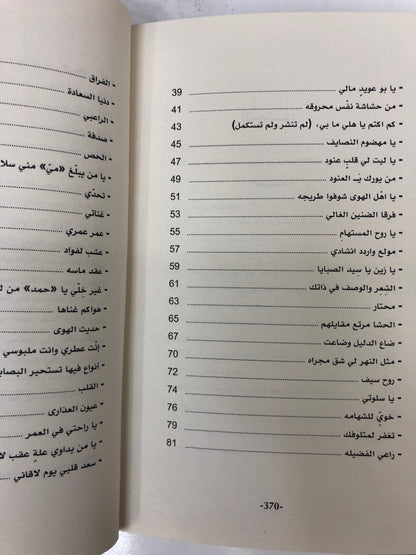 - يا بو عويد مالي 39
- من حشاشة نفس محروقه 41
- كم اكتم يا هلي ما بي، (لم تنشر ولم تستكمل) 43
- يا مهضوم النصايف 45
- يا ليت لي قلبٍ عنود 47
- من يورك يـ العنود 49
- يا اهل الهوى شوفوا طريحه 51
- فرقا الضنين الغالي 53
- يا روح المستهامِ 55
- مولع واردد انشادي 57
- يا زين يا سيد الصبايا 59
- الشِعِر والوصف في ذاتك 61
- محتار 63
- الحشا مرتع مقابلهم 65
- ضاع الدليل وضاعت 67
- مثل النهر لي شق مجراه 70
- روح سيف 72
- يا سلوتي 74
- خويٍّ للشهامه 76
- تغفر لمتلوفك 79
- راعي الفضيله 81
-370-
- الفراق
- دنيا السعادة
- الراعبي
- صدفة
- الحص
- يا من يبلّغ «ميّ» مني سلا
- تحدّي
- غناتي
- عمر عمري
- عشب لفواد
- عقد ماسه
- غير خِلّي يا «حمد» من ل
- هواكم غناها
- حديث الهوى
- إنْت عطري وانت ملبوسي
- أنواع فيها تستحير البصا
- القلب
- عيون العذارى
- يا راحتي في العمر
- يا من يداوي علةٍ عقب لا
- سعد قلبي يوم لاقاني